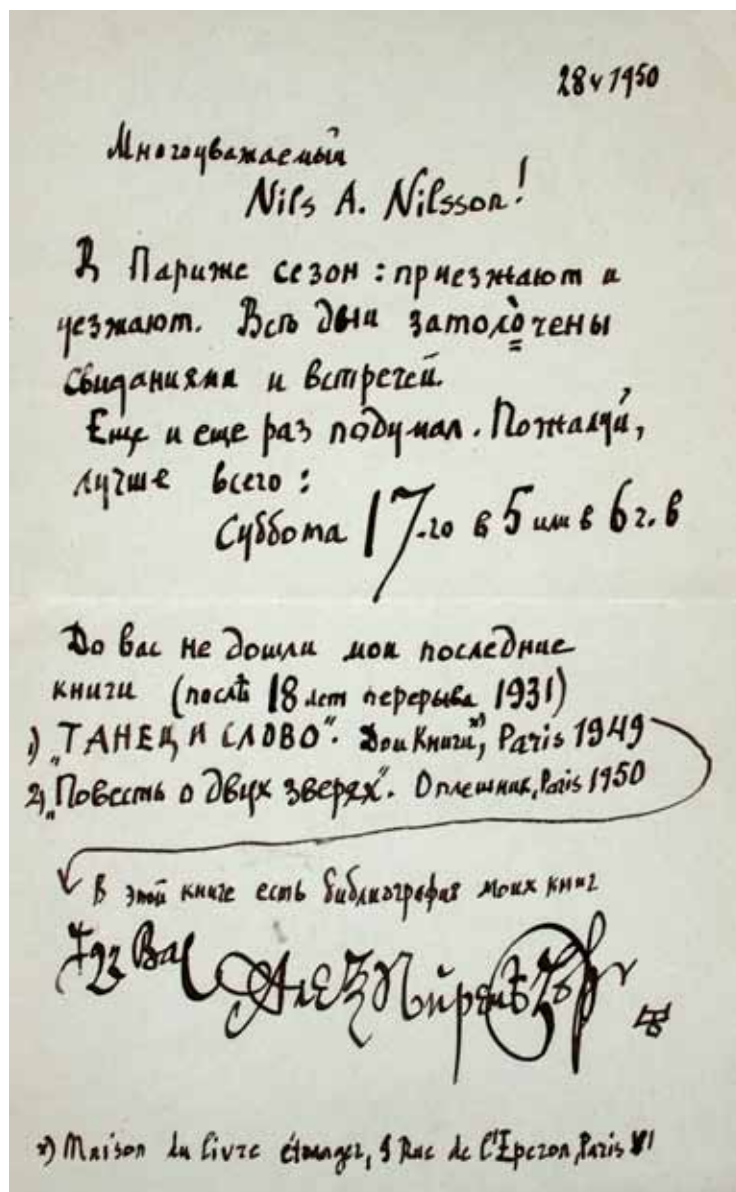 28 V 1950
Многоуважаемый
Nils A. Nilsson!
В Париже сезон: приезжают и
уезжают. Всѣ дни затоло̀чены
свиданиями и встречей.
Еще и еще раз подумал. Пожалуй,
лучше всего:
Суббота 17-го в 5 или в 6 ч. в
До вас не дошли мои последние
книги (послѣ 18 лет перерыва 1931)
1) „ТАНЕЦ И СЛОВО“. Дом Книги*), Paris 1949
2) „Повесть о двух зверях“. Оплешник, Paris 1950
В этой книге есть библиография моих книг
Алексѣй Ремизов
*) Maison du livre étranger, 9 Rue de l'Eperon, Paris VI